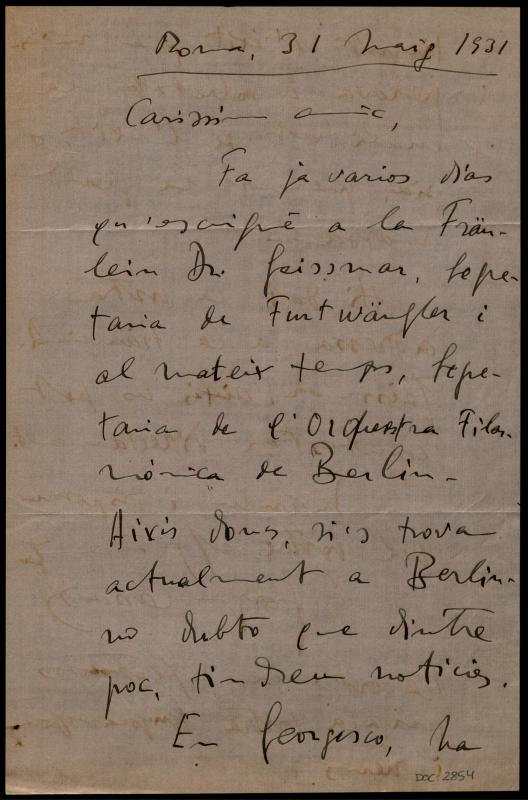 Roma, 31 Maig 1931
Carissim amic,
Fa ja varios dias
qu'escrigué a la Fräu-
lein Dr. Geissmar, Sepe-
taria de Furtwängler i
al mateix temps, Sepe-
taria de l'Orquestra Filar-
mónica de Berlin.
Aixis doncs, si's trova
actualment a Berlin-
no dubto que dintre
poc, tindrem noticies.
En Georgesco, ha
DOC. 2854